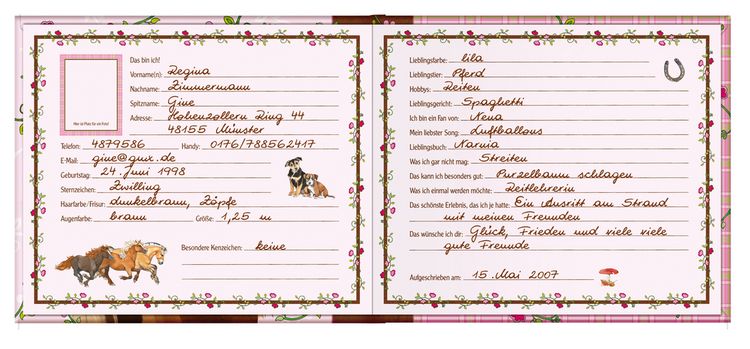 Das bin ich!
Vorname(n): Regina
Nachname: Zimmermann
Spitzname: Gine
Adresse: Hohenzollern Ring 44
48155 Münster
Hier ist Platz für ein Foto!
Telefon: 4879586 Handy: 0176/788562417
E-Mail: gine@gmx.de
Geburtstag: 24. Juni 1998
Sternzeichen: Zwilling
Haarfarbe/Frisur: dunkelbraun, Zöpfe
Augenfarbe: braun Größe: 1,25 m
Besondere Kennzeichen: keine
Lieblingsfarbe: lila
Lieblingstier: Pferd
Hobbys: Reiten
Lieblingsgericht: Spaghetti
Ich bin ein Fan von: Nena
Mein liebster Song: Luftballons
Lieblingsbuch: Narnia
Was ich gar nicht mag: Streiten
Das kann ich besonders gut: Purzelbaum schlagen
Was ich einmal werden möchte: Reitlehrerin
Das schönste Erlebnis, das ich je hatte: Ein Ausritt am Strand
mit meinen Freunden
Das wünsche ich dir: Glück, Frieden und viele viele
gute Freunde
Aufgeschrieben am: 15. Mai 2007